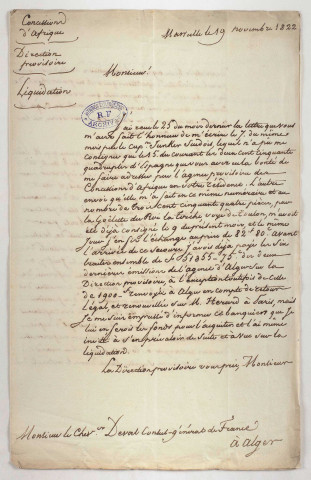 Concessions
d'Afrique
Direction
provisoire
Liquidation
Marseille le 19 novembre 1822
Monsieur
J'ai reçu le 25 du mois dernier la lettre que vous
m'avez fait l'honneur de m'écrire le 7 du même
mois par le Cap.ne Junker Suédois, lequel n'a pu me
consigner que le 5 du courant les deux cent cinquante
quadruples d'Espagne que vous avez eu la bonté de
me faire adresser par l'agence provisoire des
Concessions d'afrique en votre résidence. L'autre
envoi qu'elle m'a fait en ce même numéraire et au
nombre de trois cent cinquante quatre pièces, par
la Goëlette du Roi la Torche, voie de Toulon, m'avoit
été déjà consigné le 9 du présent mois, et le même
jour j'en fis l'échange au prix de 82" 80. avant
l'arrivée de ce secours j'avois déjà payé les six
traites ensemble de f 51955 - 75 des deux
dernières émissions de l'agence d'Alger sur la
Direction provisoire, à l'exception toutefois de celle
de 1900 renvoyée à Alger en compte de retour
légal, et renouvellée sur M. Herard à Paris, mais
je me suis empressé d'informer ce banquier que je
lui en ferois les fonds pour l'acquitter et l'ai même
invité à s'en prévaloir de suite et à vue sur la
liquidation.
La Direction provisoire vous prie, Monsieur
Monsieur le Chev.er Deval Consul-général de France
à alger
R.F